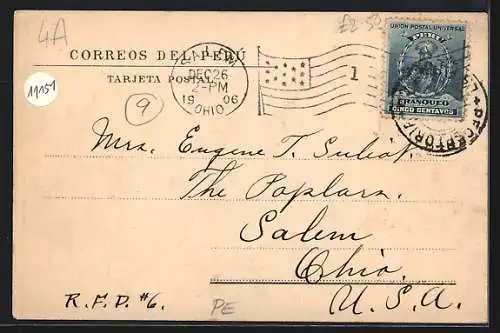 4A
£2.50
CORREOS DEL PERÚ
TARJETA POSTAL
11151
9
SALEM
DEC 26
2-PM
1906
OHIO
1
UNION POSTAL UNIVERSAL
PERU
FRANQUEO
CINCO CENTAVOS
Mrs. Eugene T.
The Poplars.
Salem
Ohio.
R.F.D. #6.
U.S.A.
PE